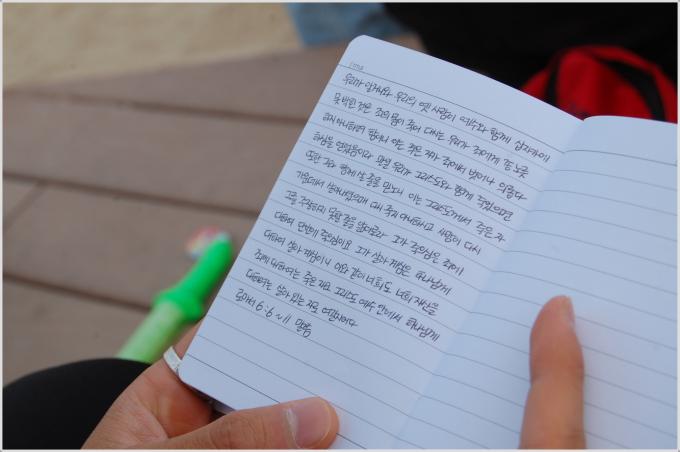 time
우리가 알거니와 우리의 옛 사람이 예수와 함께 십자가에
못 박힌 것은 죄의 몸이 죽어 다시는 우리가 죄에게 종 노릇
하지 아니하려 함이니 이는 죽은 자가 죄에서 벗어나 의롭다
하심을 얻었음이라 만일 우리가 그리스도와 함께 죽었으면
또한 그와 함께 살 줄을 믿노니 이는 그리스도께서 죽은 자
가운데서 살아나셨으매 다시 죽지 아니하시고 사망이 다시
그를 주장하지 못할 줄을 앎이로라 그가 죽으심은 죄에
대하여 단번에 죽으심이요 그가 살아 계심은 하나님께
대하여 살아 계심이니 이와 같이 너희도 너희 자신을
죄에 대하여는 죽은 자요 그리스도 예수 안에서 하나님께
대하여는 살아 있는 자로 여길지어다
로마서 6:6~11 말씀